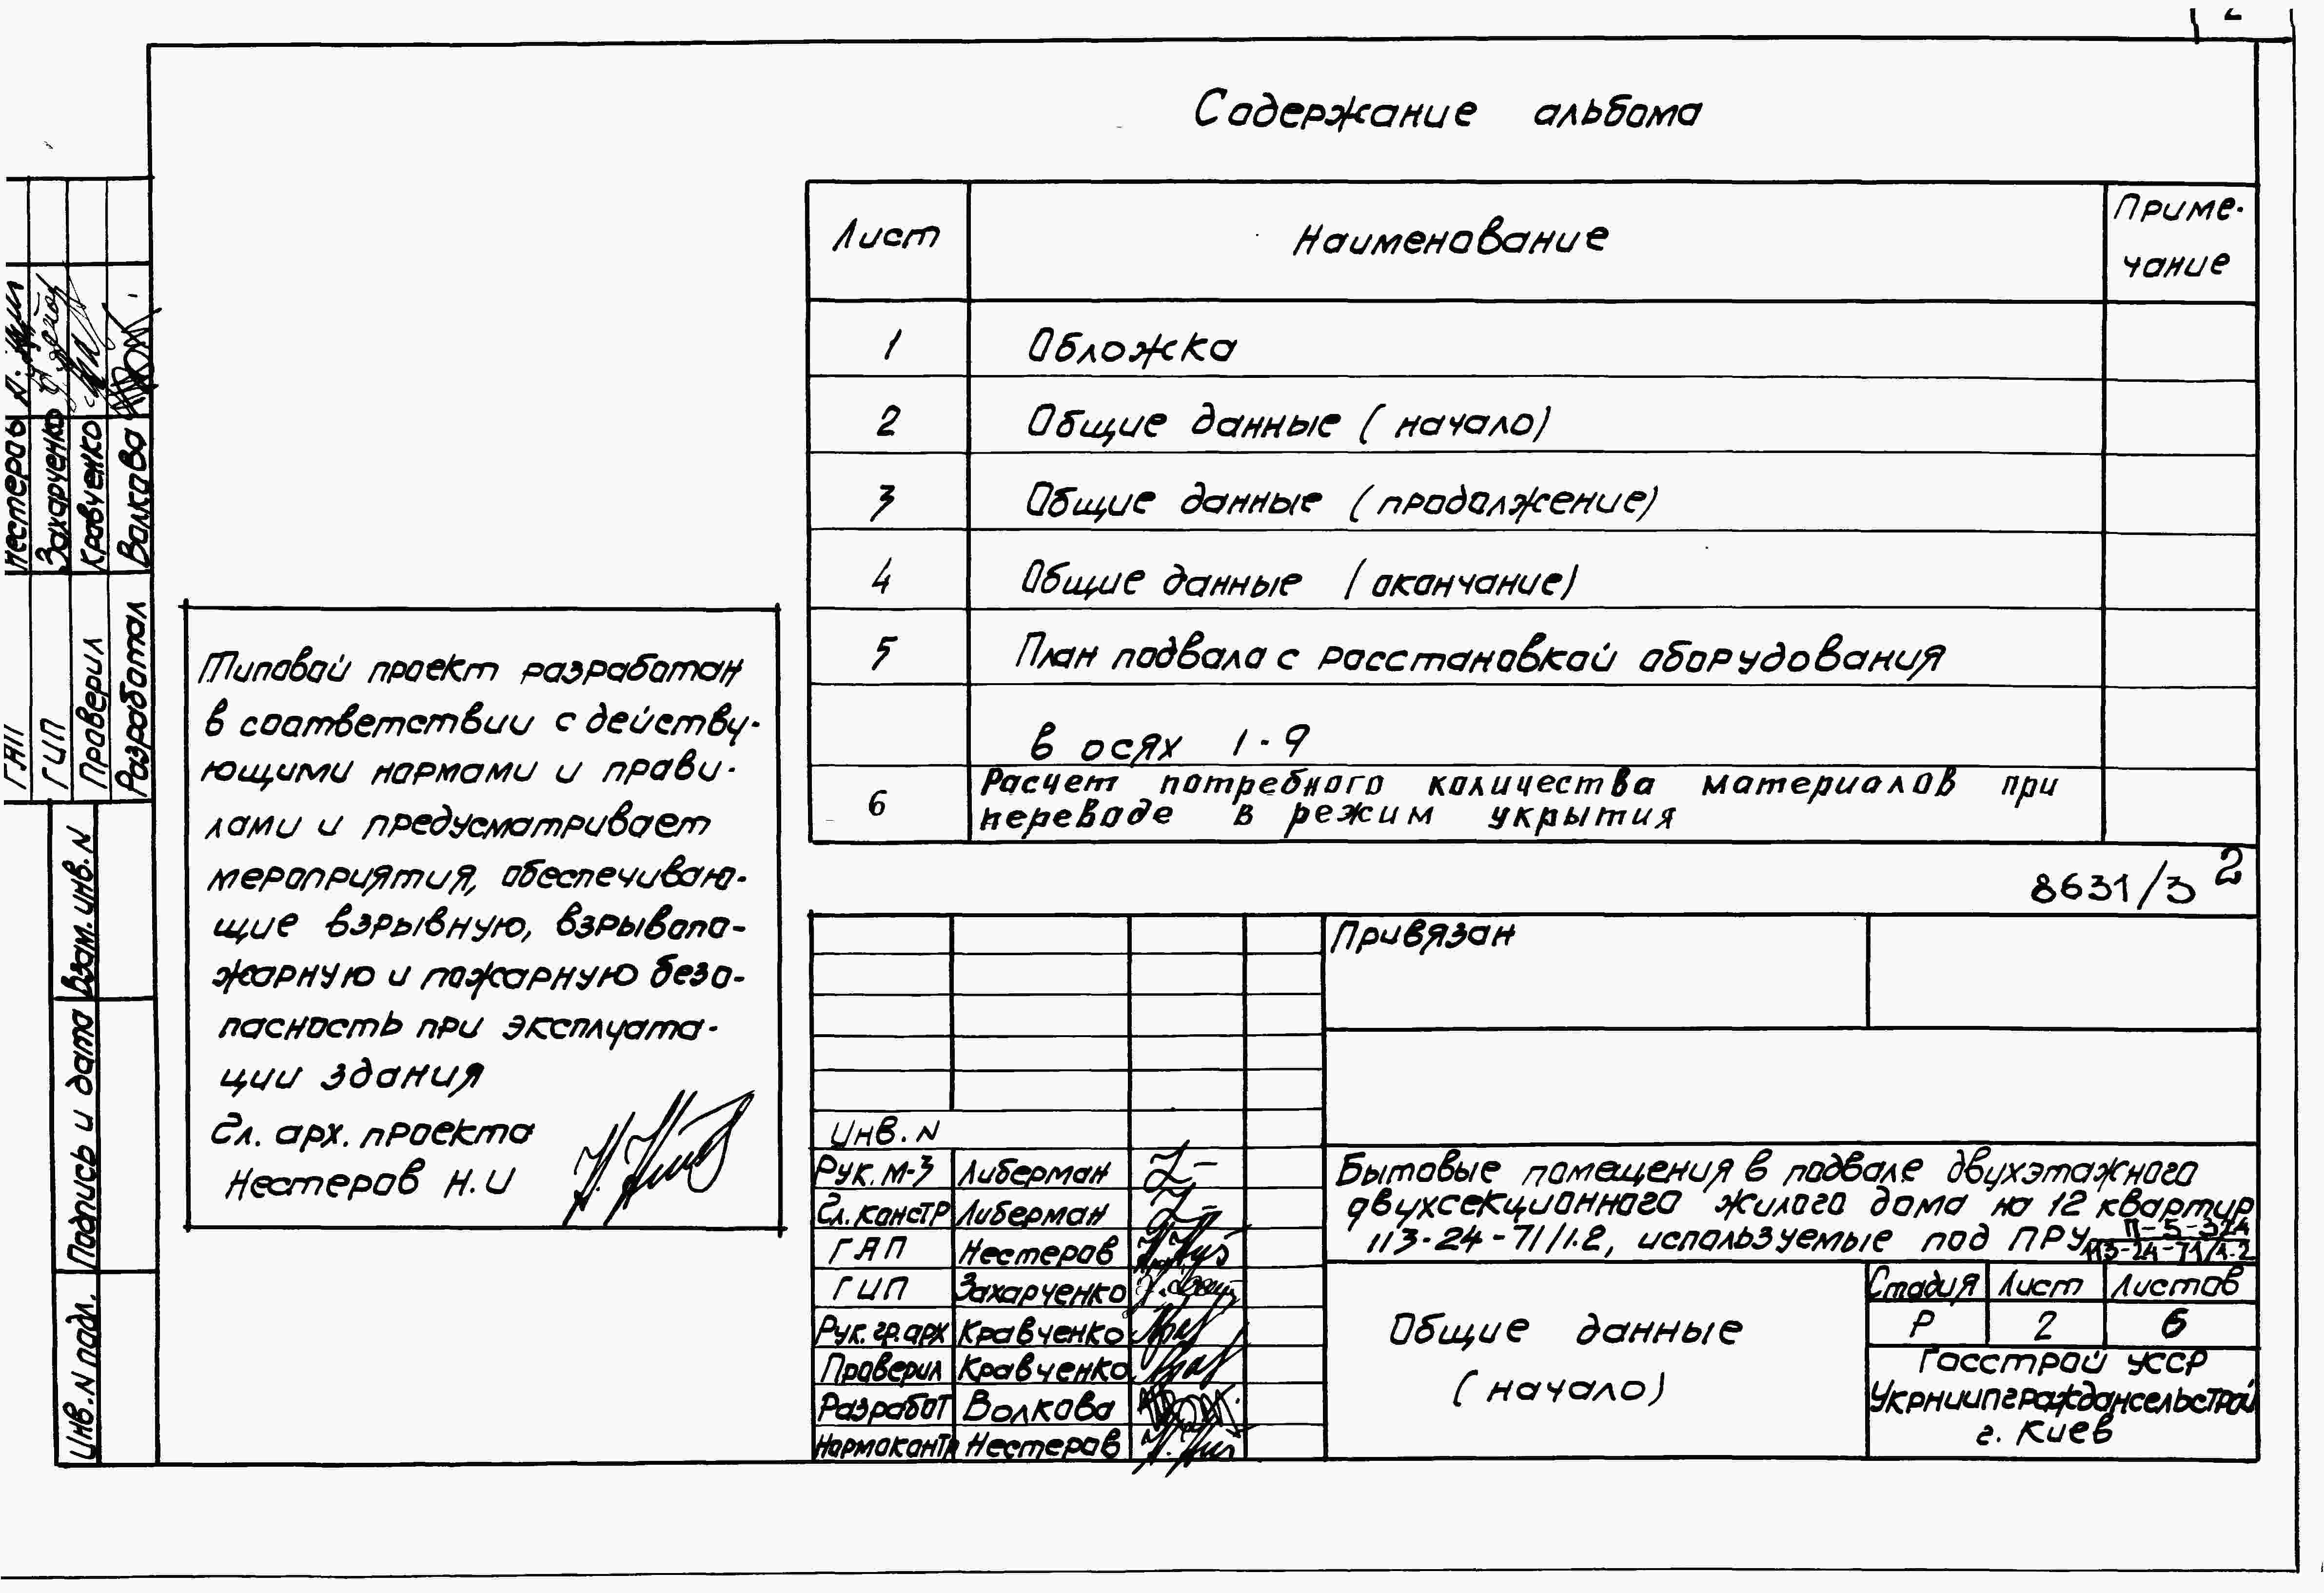 2
Содержание альбома
Лист Наименование Приме-
чание
1 Обложка
2 Общие данные (начало)
3 Общие данные (продолжение)
4 Общие данные (окончание)
5 План подвала с расстановкой оборудования
в осях 1-9
6 Расчет потребного количества материалов при
переводе в режим укрытия
8631/3 2
Типовой проект разработан
в соответствии с действу-
ющими нормами и прави-
лами и предусматривает
мероприятия, обеспечиваю-
щие взрывную, взрывопо-
жарную и пожарную безо-
пасность при эксплуата-
ции здания
Гл. арх. проекта
Нестеров Н.И
ГАП Нестеров
ГИП Захарченко
Проверил Кравченко
Разработал Волкова
Взам. инв. N
Подпись и дата
Инв. N подл.
Привязан
Инв. N
Рук. М-3 Либерман
Гл. констр Либерман
ГАП Нестеров
ГИП Захарченко
Рук. гр. арх Кравченко
Проверил Кравченко
Разработ Волкова
Нормоконтр Нестеров
Бытовые помещения в подвале двухэтажного
двухсекционного жилого дома на 12 квартир
113-24-71/1.2, используемые под ПРУ П-5-324
113-24-71/1.2
Общие данные
(начало)
Стадия Лист Листов
Р 2 6
Госстрой УССР
Укрниипграждансельстрой
г. Киев